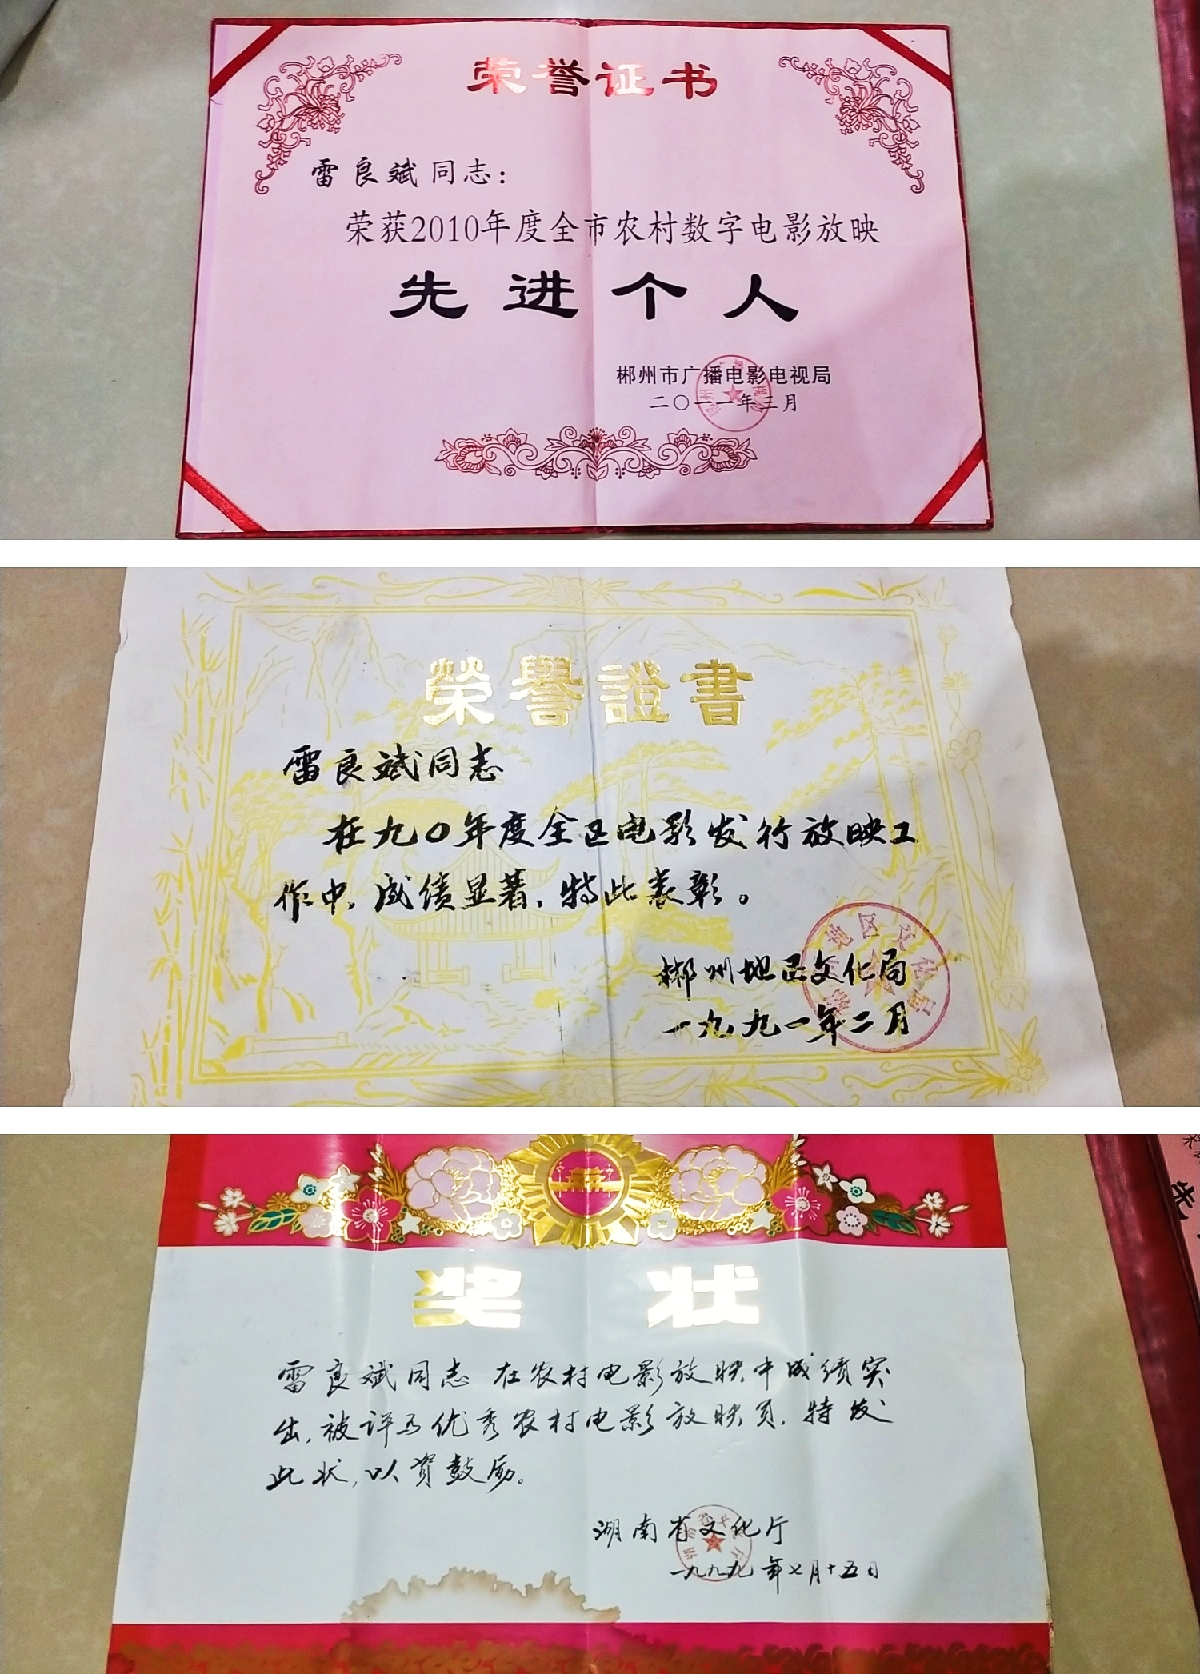 荣誉证书
雷良斌同志：
荣获2010年度全市农村数字电影放映
先进个人
郴州市广播电影电视局
二〇一一年三月
榮譽證書
雷良斌同志
在九〇年度全区电影发行放映工
作中，成绩显著，特此表彰。
郴州地区文化局
一九九一年二月
奖状
雷良斌同志 在农村电影放映中成绩突
出，被评为优秀农村电影放映员，特发
此状，以资鼓励。
湖南省文化厅
一九九九年七月十五日
先